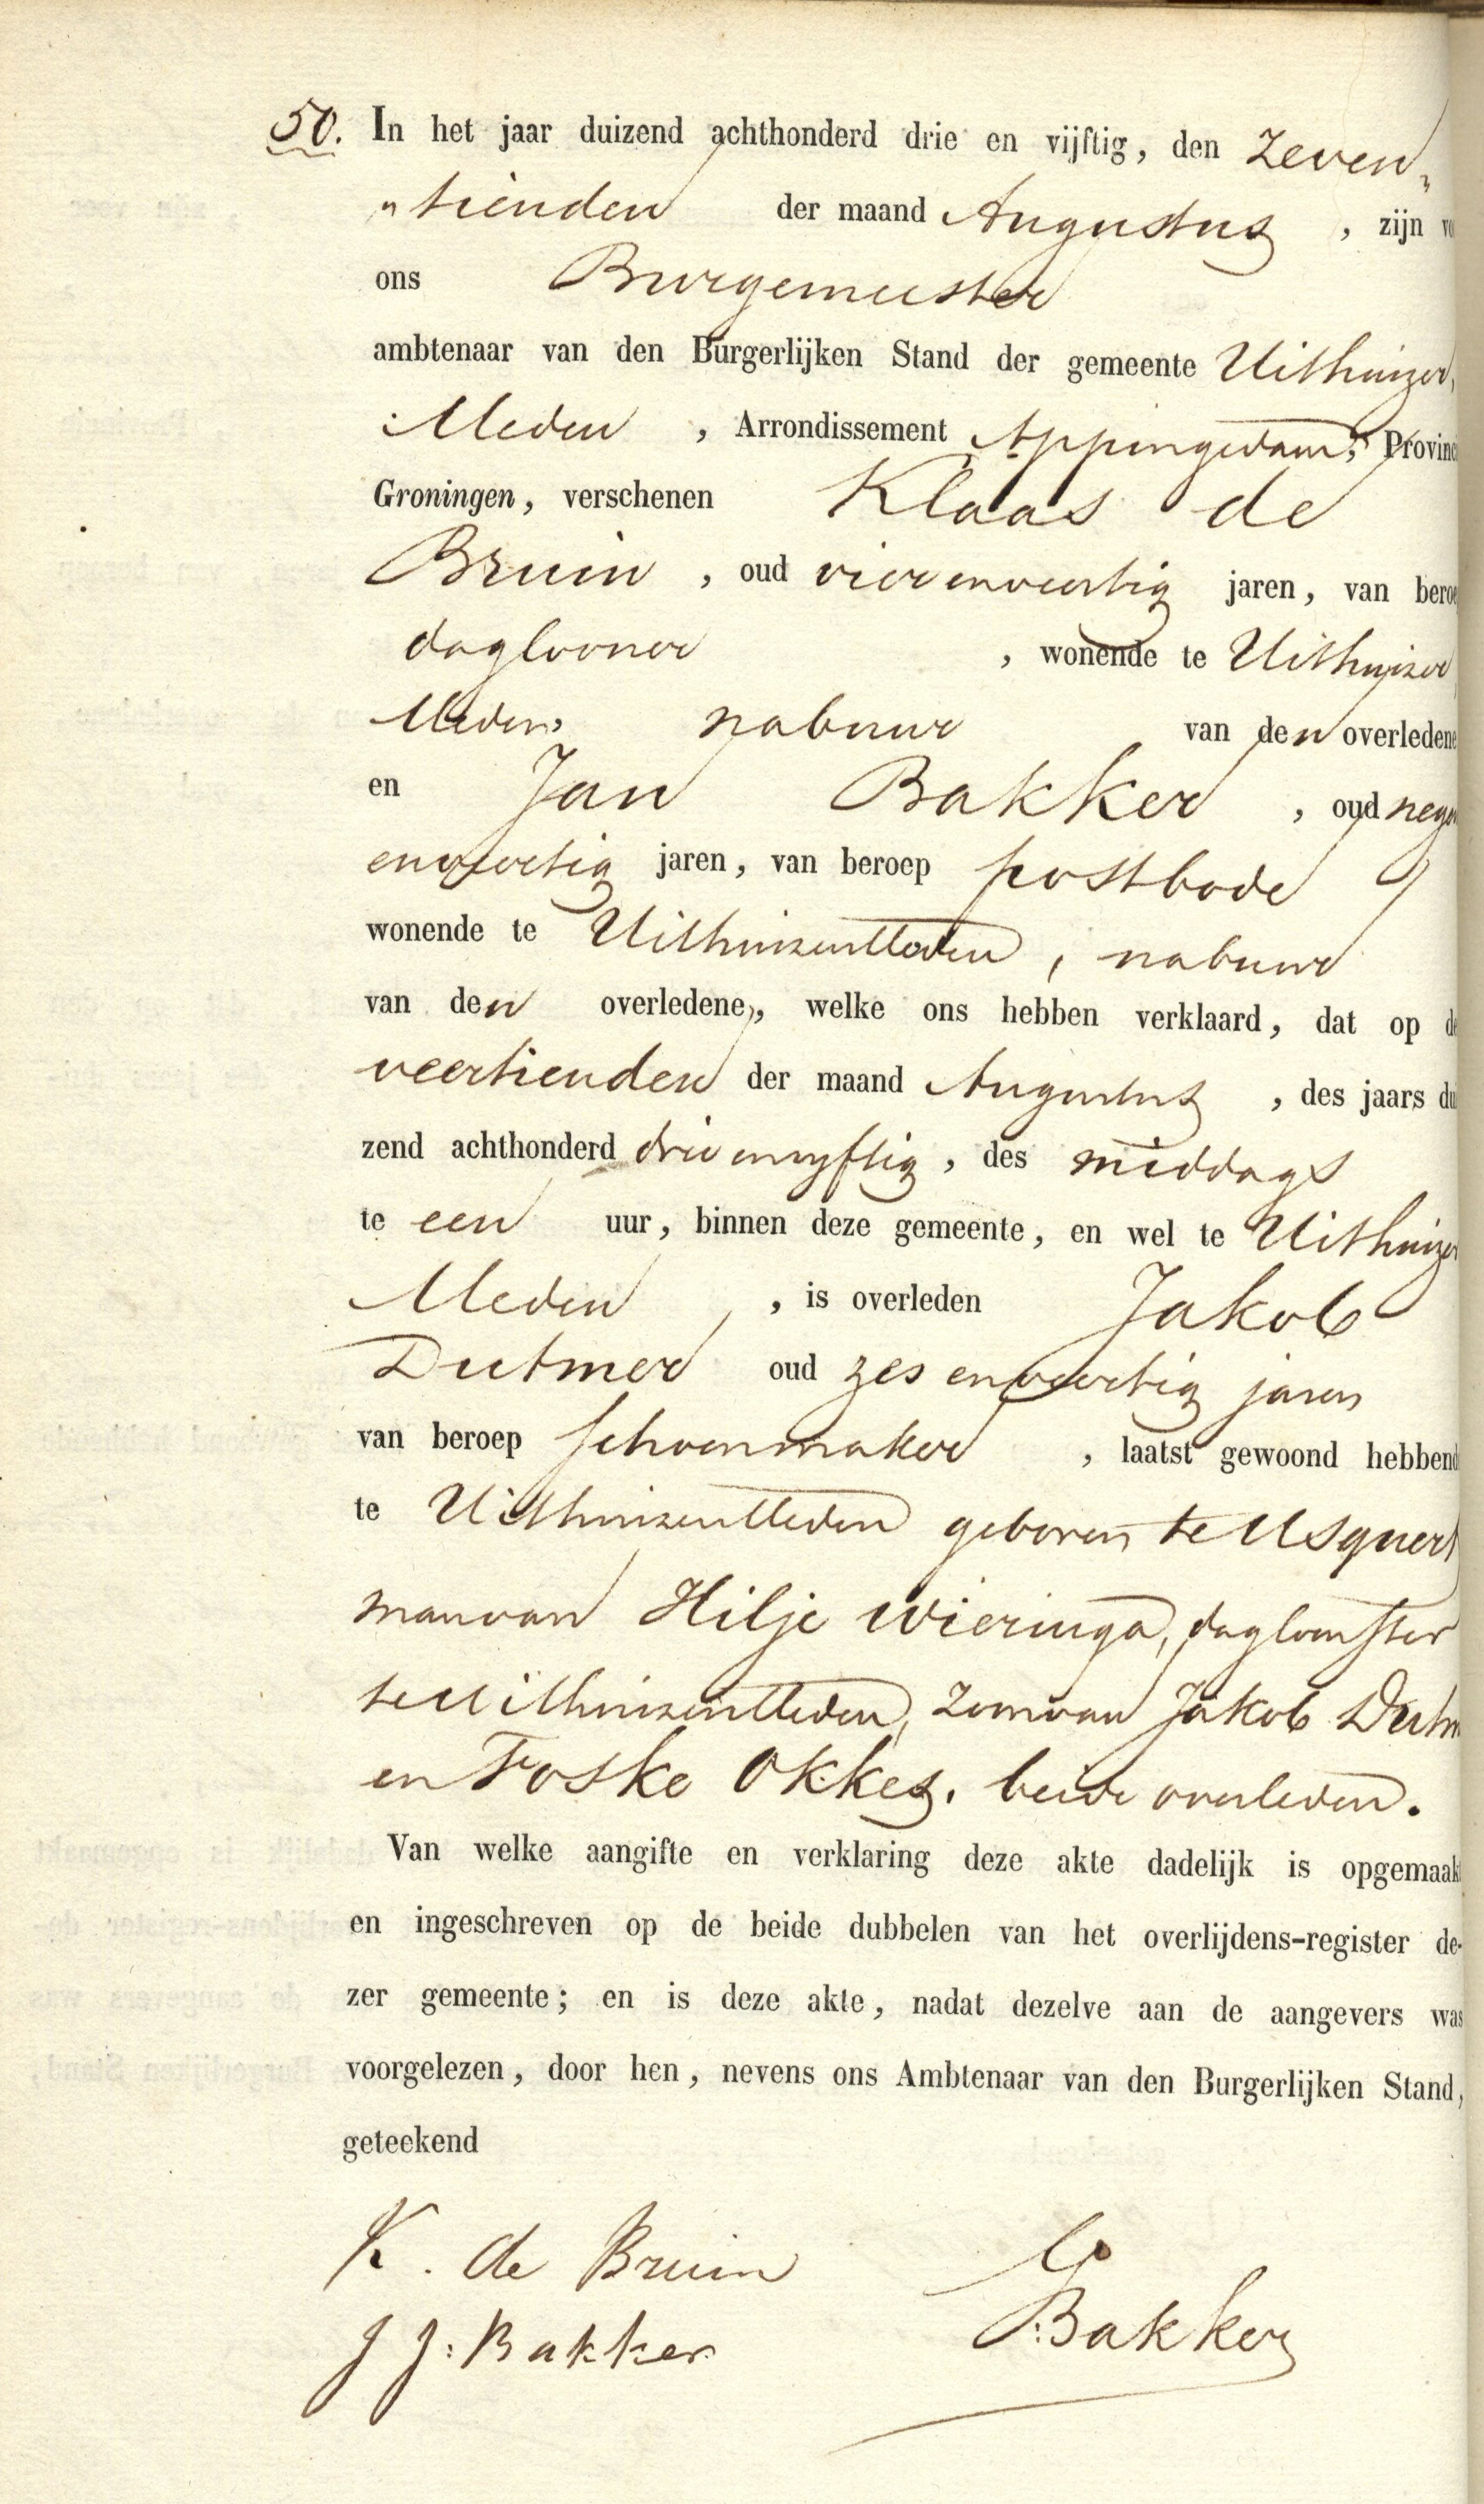 50. In het jaar duizend achthonderd drie en vijftig, den zeven„
„tienden der maand Augustus, zijn vo
ons Burgemeester
ambtenaar van den Burgerlijken Stand der gemeente Uithuizer,
Meden, Arrondissement Appingedam, Provinc
Groningen, verschenen Klaas de
Bruin, oud vierenveertig jaren, van beroe
daglooner, wonende te Uithuizer
Meden, nabuur van den overledene
en Jan Bakker, oud negen
enveertig jaren, van beroep postbode
wonende te Uithuizermeden, nabuur
van den overledene, welke ons hebben verklaard, dat op de
veertienden der maand Augustus, des jaars dui
zend achthonderd drieenvyftig, des middags
te een uur, binnen deze gemeente, en wel te Uithuizer
Meden, is overleden Jakob
Dutmer oud zes enveertig jaren
van beroep schoenmaker, laatst gewoond hebbend
te Uithuizermeden geboren te Usquert
man van Hilje Wieringa, dagloonster
te Uithuizermeden, zoon van Jakob Dutm
en Foske Okkes, beide overleden.
Van welke aangifte en verklaring deze akte dadelijk is opgemaakt
en ingeschreven op de beide dubbelen van het overlijdens-register de-
zer gemeente; en is deze akte, nadat dezelve aan de aangevers was
voorgelezen, door hen, nevens ons Ambtenaar van den Burgerlijken Stand,
geteekend
K. de Bruin
J J: Bakker
Bakker